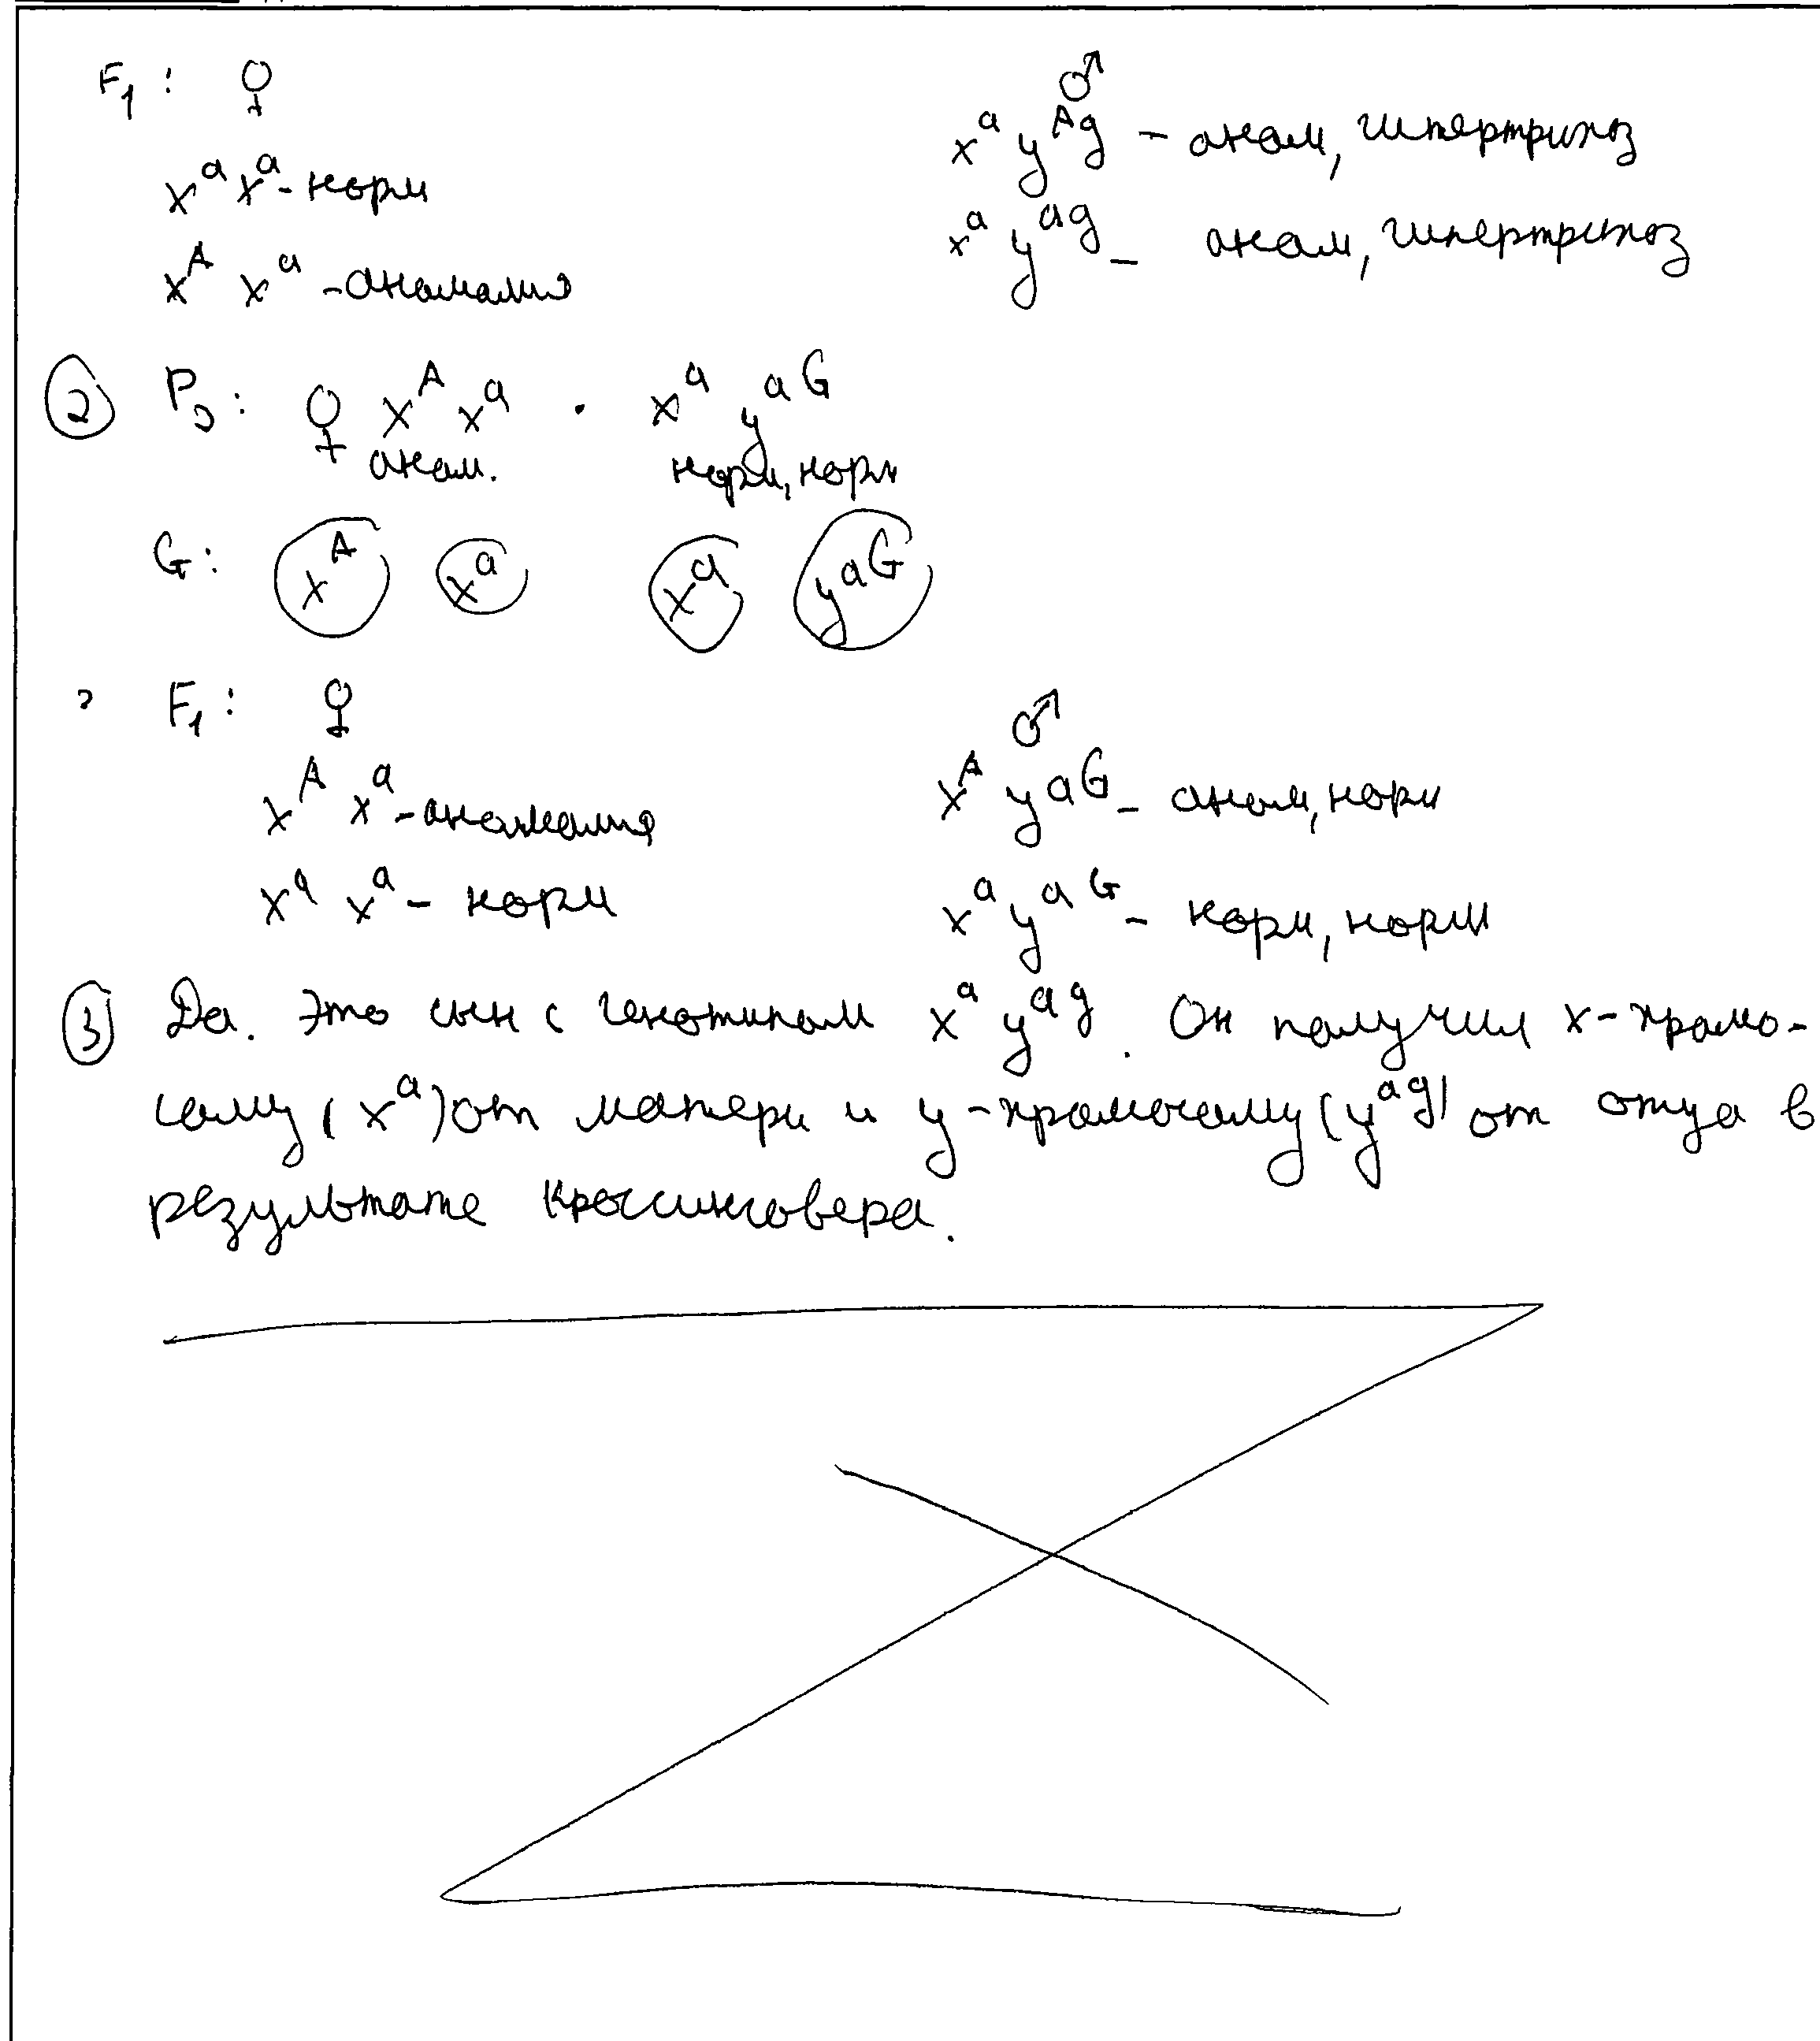 F₁ : ♀ ♂
xᵃ yᴬᵍ – аном, гипертрихоз
xᵃ xᵃ - норм
xᵃ yᵃᵍ – аном, гипертрихоз
xᴬ xᵃ - аномалия
② P₂ : ♀ xᴬ xᵃ · xᵃ yᵃᴳ
аном. норм, норм
G : xᴬ xᵃ xᵃ yᵃᴳ
F₁ : ♀ ♂
xᴬ xᵃ - аномалия xᴬ yᵃᴳ – аном, норм
xᵃ xᵃ - норм xᵃ yᵃᴳ – норм, норм
③ Да. Это сын с генотипом xᵃ yᵃᵍ. Он получил x-хромо-
сому (xᵃ) от матери и y-хромосому (yᵃᵍ) от отца в
результате кроссинговера.